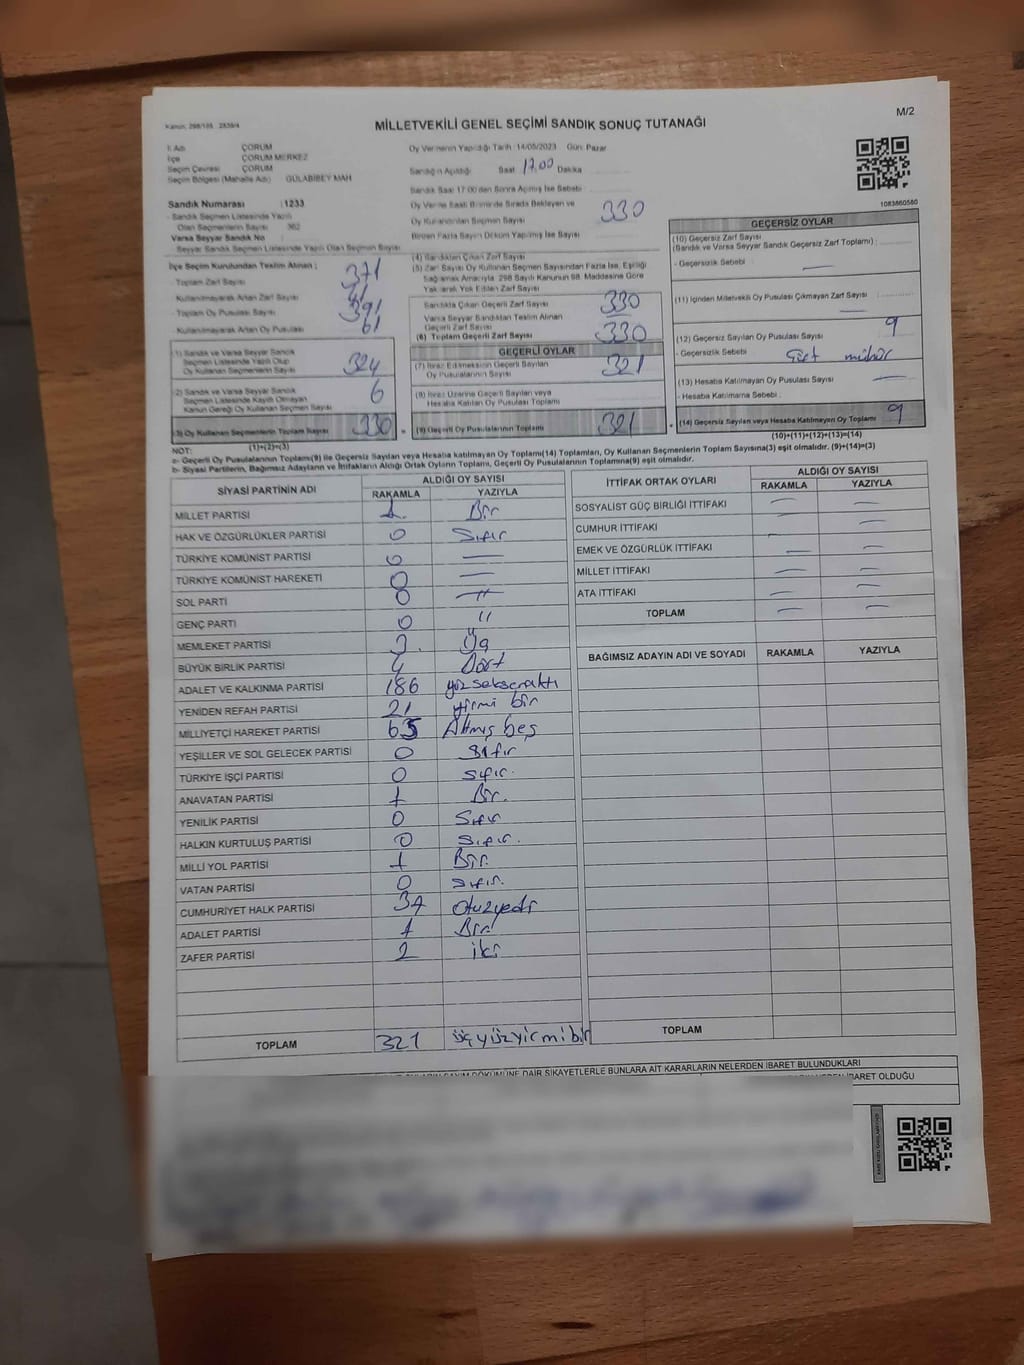 Kanun: 298/105 2839/4
M/2
MİLLETVEKİLİ GENEL SEÇİMİ SANDIK SONUÇ TUTANAĞI
İl Adı : ÇORUM
İlçe : ÇORUM MERKEZ
Seçim Çevresi : ÇORUM
Seçim Bölgesi (Mahalle Adı) : GÜLABİBEY MAH
Sandık Numarası : 1233
- Sandık Seçmen Listesinde Yazılı
Olan Seçmenlerin Sayısı : 362
Varsa Seyyar Sandık No :
- Seyyar Sandık Seçmen Listesinde Yazılı Olan Seçmen Sayısı
Oy Vermenin Yapıldığı Tarih : 14/05/2023 Gün: Pazar
Sandığın Açıldığı Saat 17.00 Dakika
Sandık Saat 17:00'den Sonra Açılmış İse Sebebi
Oy Verme Saati Bitiminde Sırada Bekleyen ve
Oy Kullandırılan Seçmen Sayısı 330
Birden Fazla Sayım Döküm Yapılmış İse Sayısı
1083860580
İlçe Seçim Kurulundan Teslim Alınan ;
- Toplam Zarf Sayısı 371
- Kullanılmayarak Artan Zarf Sayısı 41
- Toplam Oy Pusulası Sayısı 391
- Kullanılmayarak Artan Oy Pusulası 61
(1) Sandık ve Varsa Seyyar Sandık
Seçmen Listesinde Yazılı Olup
Oy Kullanan Seçmenlerin Sayısı 324
(2) Sandık ve Varsa Seyyar Sandık
Seçmen Listesinde Kayıtlı Olmayan
Kanun Gereği Oy Kullanan Seçmen Sayısı 6
(3) Oy Kullanan Seçmenlerin Toplam Sayısı 330 =
(1)+(2)=(3)
(4) Sandıktan Çıkan Zarf Sayısı
(5) Zarf Sayısı Oy Kullanan Seçmen Sayısından Fazla İse, Eşitliği
Sağlamak Amacıyla, 298 Sayılı Kanunun 98. Maddesine Göre
Yakılarak Yok Edilen Zarf Sayısı
Sandıkta Çıkan Geçerli Zarf Sayısı 330
Varsa Seyyar Sandıktan Teslim Alınan
Geçerli Zarf Sayısı —
(6) Toplam Geçerli Zarf Sayısı 330
GEÇERLİ OYLAR
(7) İtiraz Edilmeksizin Geçerli Sayılan
Oy Pusulalarının Sayısı 321
(8) İtiraz Üzerine Geçerli Sayılan veya
Hesaba Katılan Oy Pusulası Toplamı
(9) Geçerli Oy Pusulalarının Toplamı 321 +
GEÇERSİZ OYLAR
(10) Geçersiz Zarf Sayısı
(Sandık ve Varsa Seyyar Sandık Geçersiz Zarf Toplamı) :
- Geçersizlik Sebebi : —
(11) İçinden Milletvekili Oy Pusulası Çıkmayan Zarf Sayısı
—
(12) Geçersiz Sayılan Oy Pusulası Sayısı 9
- Geçersizlik Sebebi : Çift mühür
(13) Hesaba Katılmayan Oy Pusulası Sayısı —
- Hesaba Katılmama Sebebi :
(14) Geçersiz Sayılan veya Hesaba Katılmayan Oy Toplamı 9
(10)+(11)+(12)+(13)=(14)
NOT:
a- Geçerli Oy Pusulalarının Toplamı(9) ile Geçersiz Sayılan veya Hesaba katılmayan Oy Toplamı(14) Toplamları, Oy Kullanan Seçmenlerin Toplam Sayısına(3) eşit olmalıdır. (9)+(14)=(3)
b- Siyasi Partilerin, Bağımsız Adayların ve İttifakların Aldığı Ortak Oyların Toplamı, Geçerli Oy Pusulalarının Toplamına(9) eşit olmalıdır.
SİYASİ PARTİNİN ADI ALDIĞI OY SAYISI
RAKAMLA YAZIYLA
MİLLET PARTİSİ 1 Bir
HAK VE ÖZGÜRLÜKLER PARTİSİ 0 Sıfır
TÜRKİYE KOMÜNİST PARTİSİ 0 —
TÜRKİYE KOMÜNİST HAREKETİ 0 —
SOL PARTİ 0 "
GENÇ PARTİ 0 "
MEMLEKET PARTİSİ 3 Üç
BÜYÜK BİRLİK PARTİSİ 4 Dört
ADALET VE KALKINMA PARTİSİ 186 yüzseksenaltı
YENİDEN REFAH PARTİSİ 21 yirmi bir
MİLLİYETÇİ HAREKET PARTİSİ 65 Altmış beş
YEŞİLLER VE SOL GELECEK PARTİSİ 0 Sıfır
TÜRKİYE İŞÇİ PARTİSİ 0 sıfır.
ANAVATAN PARTİSİ 1 Bir.
YENİLİK PARTİSİ 0 Sıfır
HALKIN KURTULUŞ PARTİSİ 0 Sıfır.
MİLLİ YOL PARTİSİ 1 Bir.
VATAN PARTİSİ 0 sıfır.
CUMHURİYET HALK PARTİSİ 37 otuzyedi
ADALET PARTİSİ 1 Bir
ZAFER PARTİSİ 2 iki
TOPLAM 321 üçyüzyirmibir
İTTİFAK ORTAK OYLARI ALDIĞI OY SAYISI
RAKAMLA YAZIYLA
SOSYALİST GÜÇ BİRLİĞİ İTTİFAKI — —
CUMHUR İTTİFAKI — —
EMEK VE ÖZGÜRLÜK İTTİFAKI — —
MİLLET İTTİFAKI — —
ATA İTTİFAKI — —
TOPLAM — —
BAĞIMSIZ ADAYIN ADI VE SOYADI RAKAMLA YAZIYLA
TOPLAM
DÖKÜMÜNE DAİR ŞİKAYETLERLE BUNLARA AİT KARARLARIN NELERDEN İBARET BULUNDUKLARI
İBARET OLDUĞU